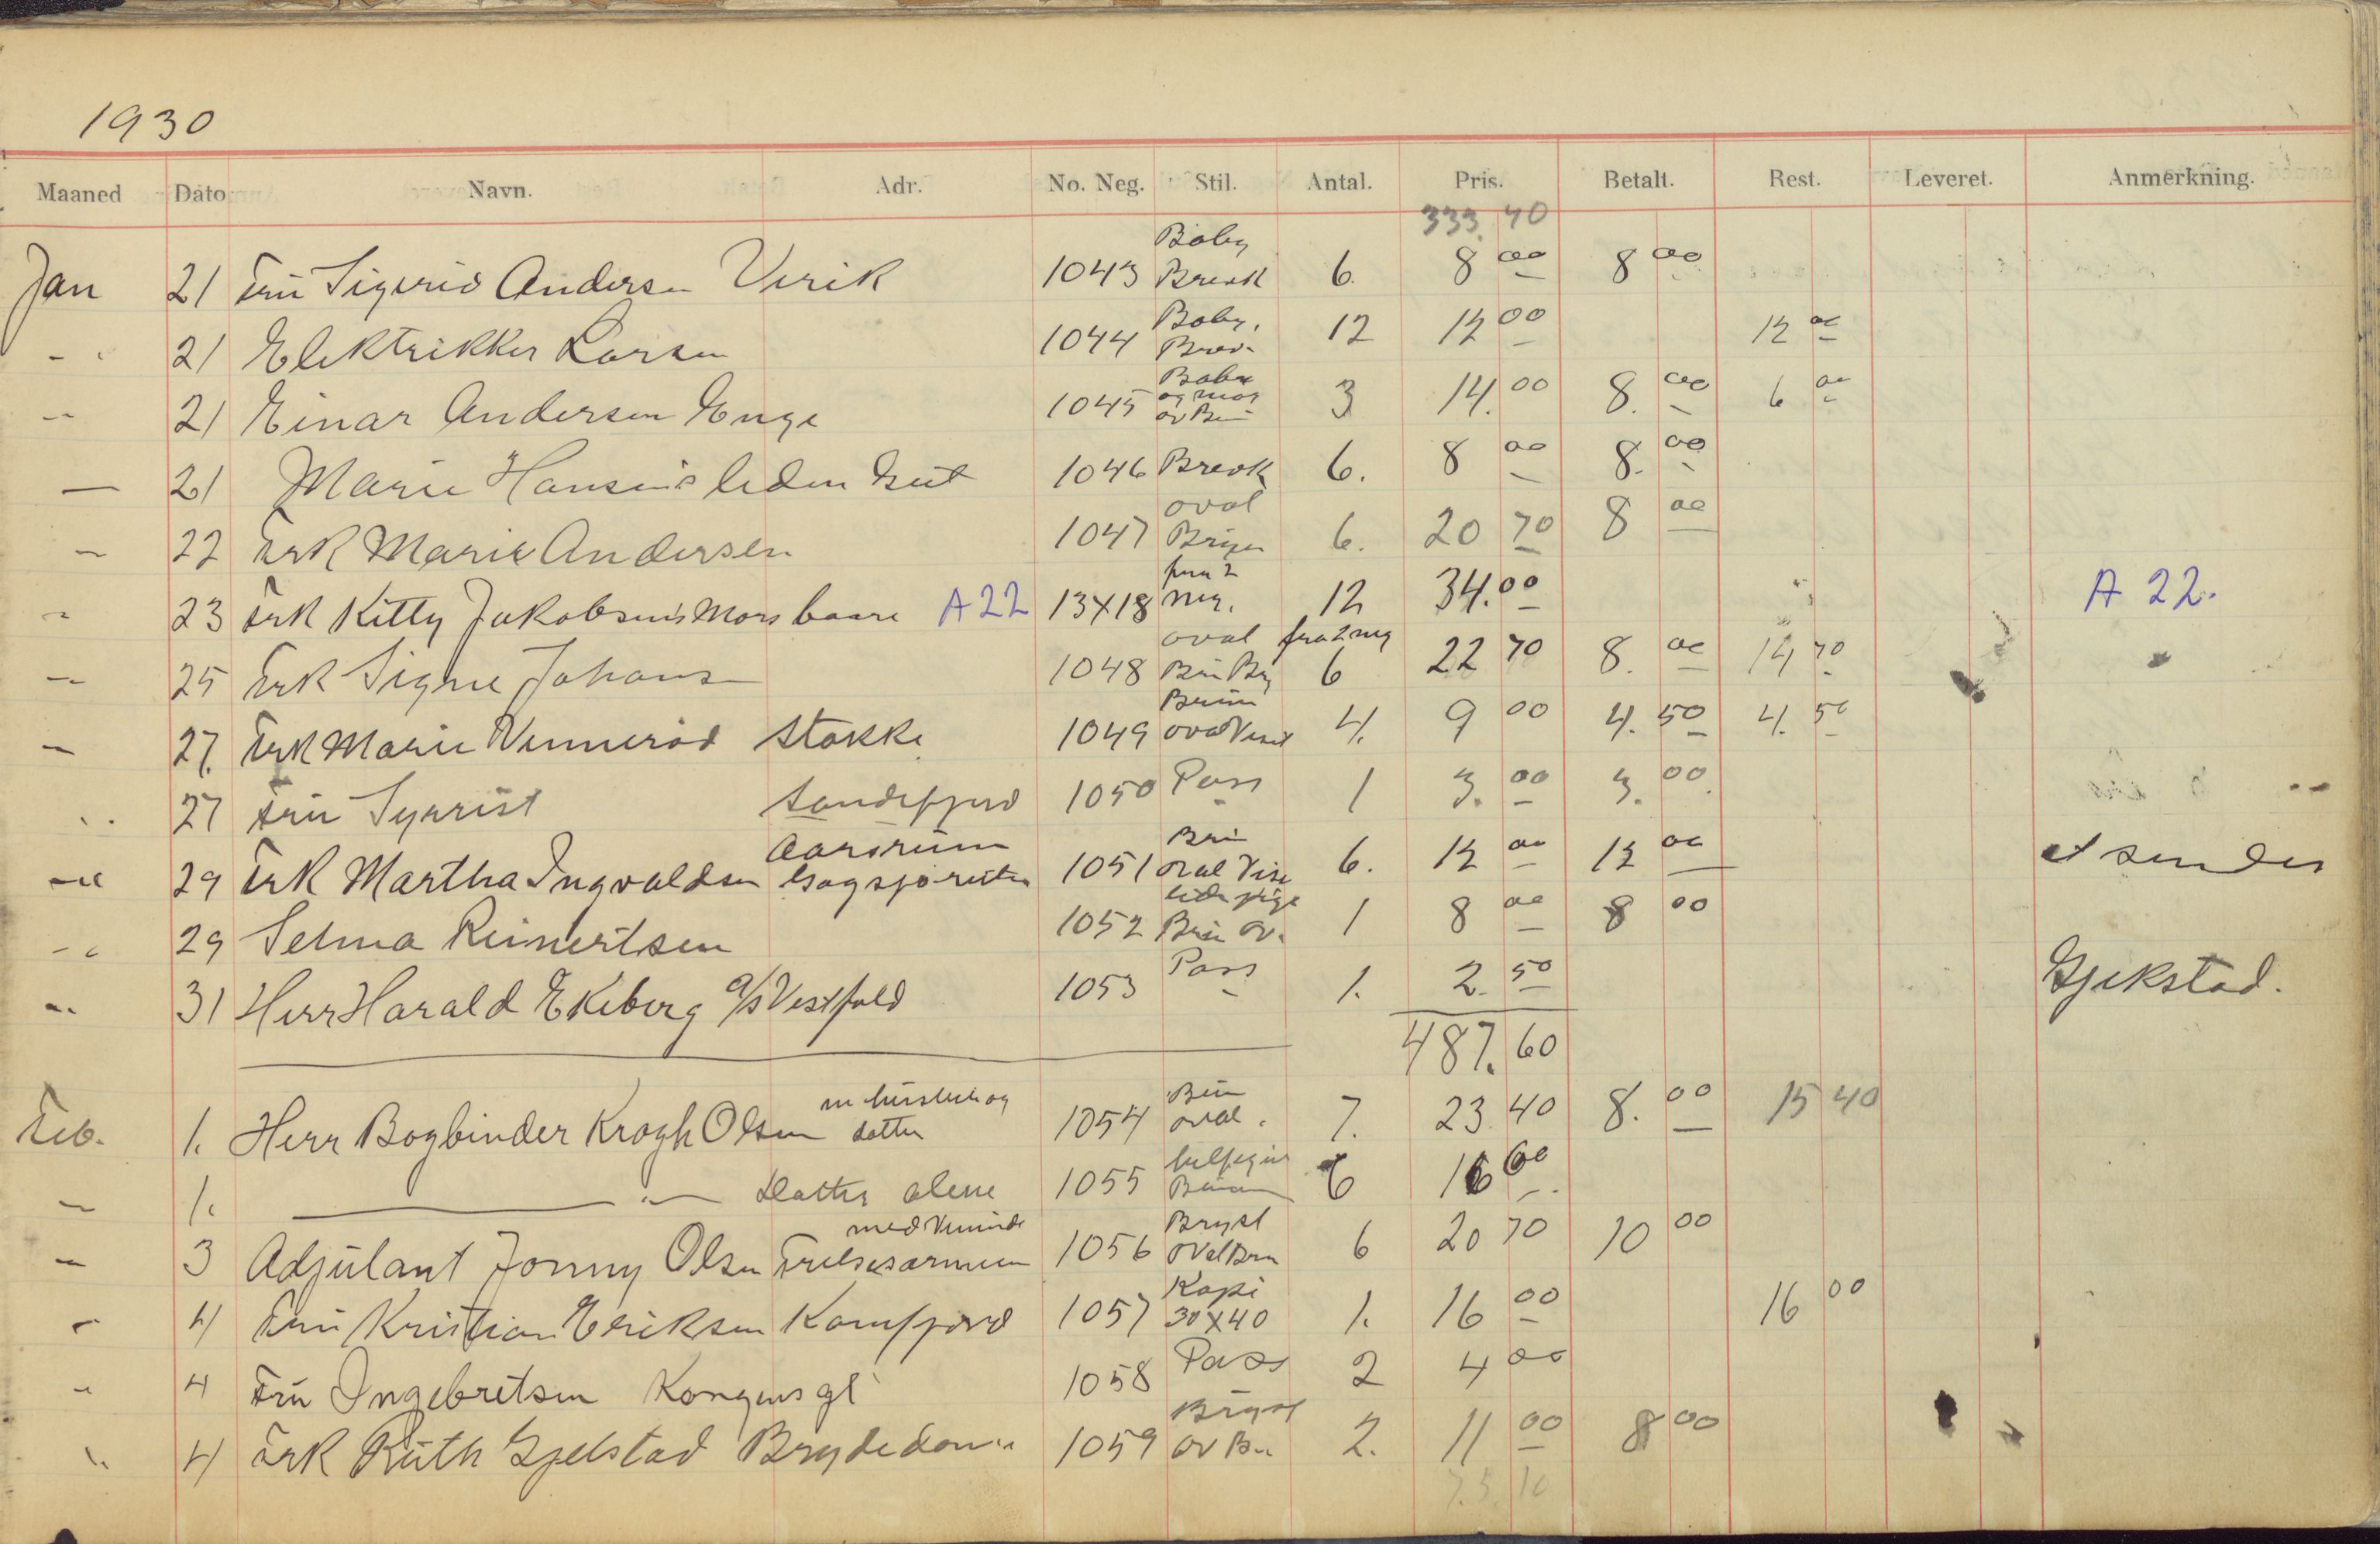 1930
Maaned Dato Navn. Adr. No. Neg. Stil. Antal. Pris. Betalt. Rest. Leveret. Anmerkning.
333.40
Jan 21 Fru Sigurid Andersen Virik 1043 Baby Brevk 6. 8 00 8 00
21 Elektrikker Larsen 1044 Baby. Brev. 12 12 00 12 00
21 Einar Andersen Enge 1045 Baby og mor ov Br 3 14.00 8.00 6 00
21 Marie Hansens leden Gut 1046 Brevk 6. 8 00 8.00
22 Frk Marie Andersen 1047 oval 6. 20 70 8 00
23 Frk Kitty Jakobsens Mors baare A22 13X18 fra 2 neg. 12 34.00 A 22.
25 Frk Signe Johans 1048 oval fra 2 neg 6 22 70 8.00 14 70
27. Frk Marie Vennerød Stokke 1049 Brun oval Visit 4. 9 00 4.50 4.50
27 Fru Syrrist Sandefjord 1050 Pass 1 3.00 3.00.
29 Frk Martha Ingvaldsen Aarsrum 1051 Brun oval Visi 6. 12 00 12 00 at sendes
29 Selma Reinertsen 1052 liden pige Brun ov. 1 8 00 8 00
31 Herr Harald Ekeberg a/s Vestfold 1053 Pass 1. 2.50 Gjekstad.
487.60
Feb. 1. Herr Bogbinder Krogh Olsen m hustru og datter 1054 Brun oval. 7. 23.40 8.00 15 40
1. Datter alene 1055 helfigur Brun 6 16 00
3 Adjutant Jonny Olsen Frelsesarmeen med Veninde 1056 Bryst oval Brn 6 20 70 10 00
4 Fru Kristian Eriksen Kamfjord 1057 Kopi 30X40 1. 16 00 16 00
4 Fru Ingebretsen Kongens gt 1058 Pass 2 4 00
4 Frk Ruth Gjelstad Brydedam 1059 Bryst ov Br. 2. 11 00 8 00
75.10